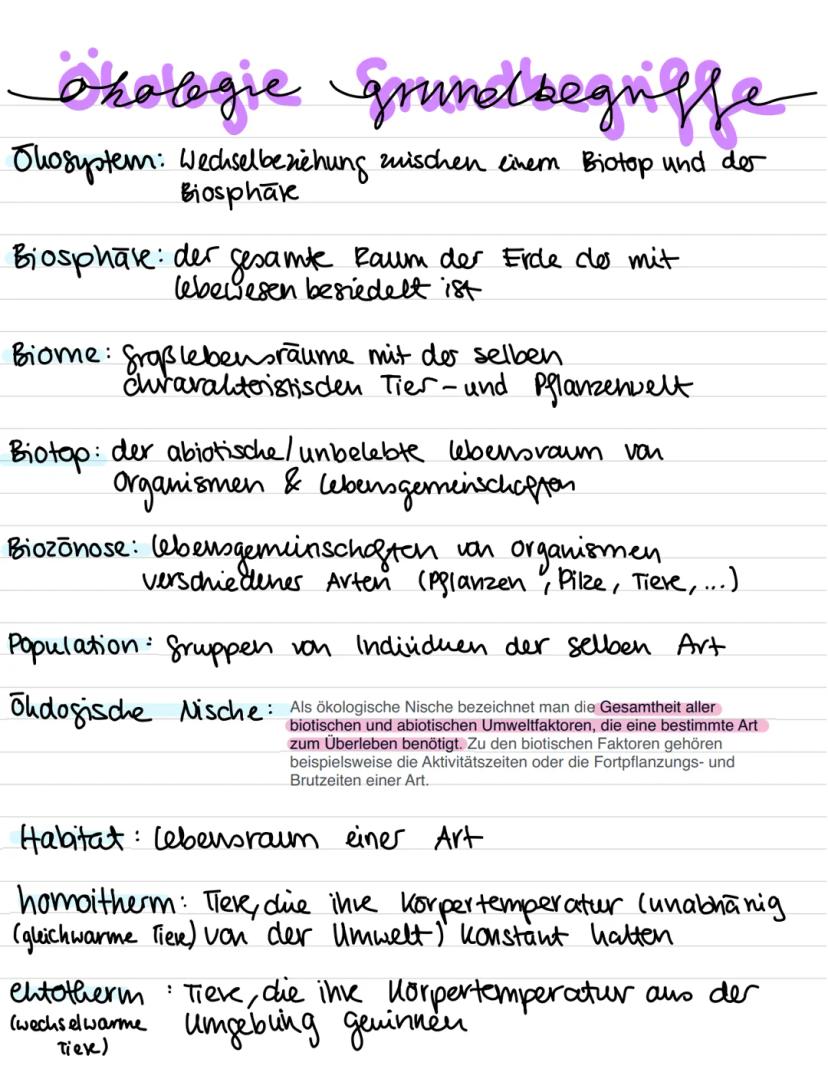 Ökologie Grundbegriffe
Ökosystem: Wechselbeziehung zwischen einem Biotop und der
Biosphäre
Biosphäre: der gesamte Raum der Erde der mit
Lebewesen besiedelt ist
Biome: Großlebensräume mit der selben
charakteristischen Tier- und Pflanzenwelt
Biotop: der abiotische/unbelebte Lebensraum von
Organismen & Lebensgemeinschaften
Biozönose: Lebensgemeinschaften von Organismen
verschiedener Arten (Pflanzen, Pilze, Tiere, ...)
Population: Gruppen von Individuen der selben Art
Ökologische Nische: Als ökologische Nische bezeichnet man die Gesamtheit aller
biotischen und abiotischen Umweltfaktoren, die eine bestimmte Art
zum Überleben benötigt. Zu den biotischen Faktoren gehören
beispielsweise die Aktivitätszeiten oder die Fortpflanzungs- und
Brutzeiten einer Art.
Habitat: Lebensraum einer Art
homoitherm: Tiere, die ihre Körpertemperatur (unabhänig
(gleichwarme Tiere) von der Umwelt) konstant halten
ektotherm: Tiere, die ihre Körpertemperatur aus der
(wechselwarme Umgebung gewinnen
Tiere)